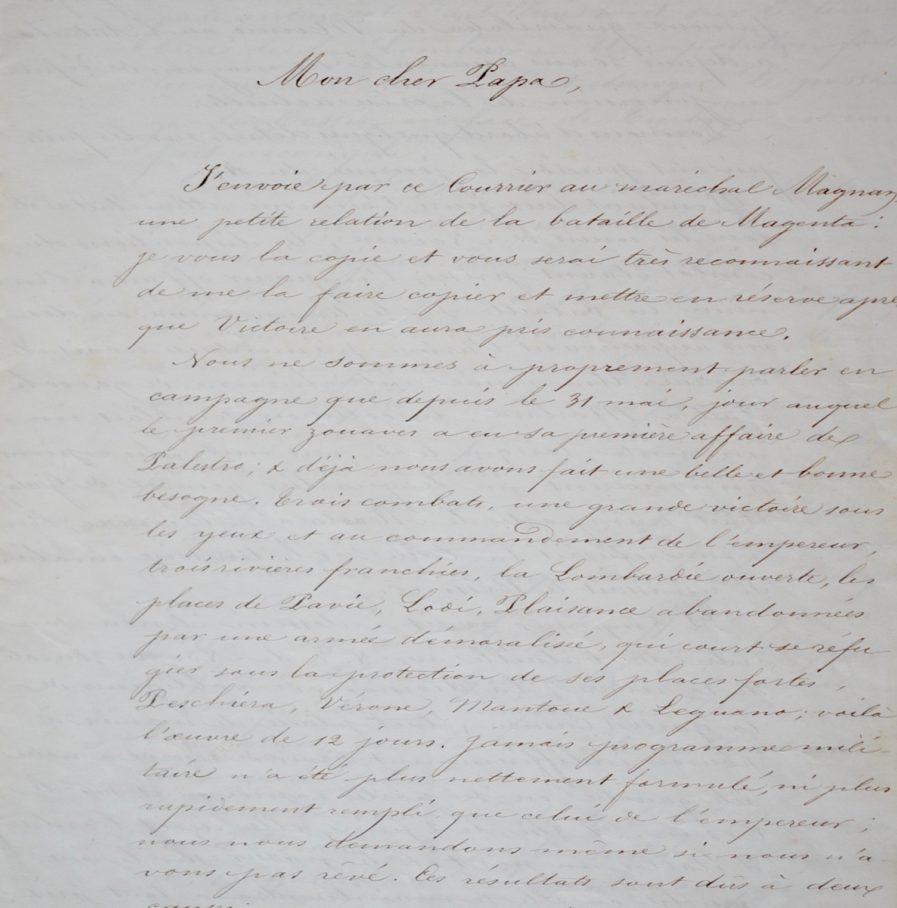 Mon cher Papa,
J'envoie par ce Courrier au maréchal Magnan
une petite relation de la bataille de Magenta :
je vous la copie et vous serai très reconnaissant
de me la faire copier et mettre en réserve aprè
que Victoire en aura pris connaissance.
Nous ne sommes à proprement parler en
campagne que depuis le 31 mai, jour auquel
le premier zouaves a eu sa première affaire de
Palestro ; & déjà nous avons fait une belle et bonne
besogne. Trois combats, une grande victoire sous
les yeux et au commandement de l'empereur,
trois rivières franchies, la Lombardie ouverte, les
places de Pavie, Lodi, Plaisance abandonnées
par une armée démoralisée, qui court se réfu
gier sous la protection de ses places fortes,
Peschiéra, Vérone, Mantoue & Legnano ; voilà
l'œuvre de 12 jours. Jamais programme mili-
taire n'a été plus nettement formulé, ni plus
rapidement rempli que celui de l'empereur ;
nous nous demandons même si nous n'a-
vons pas rêvé. Ces résultats sont dûs à deux